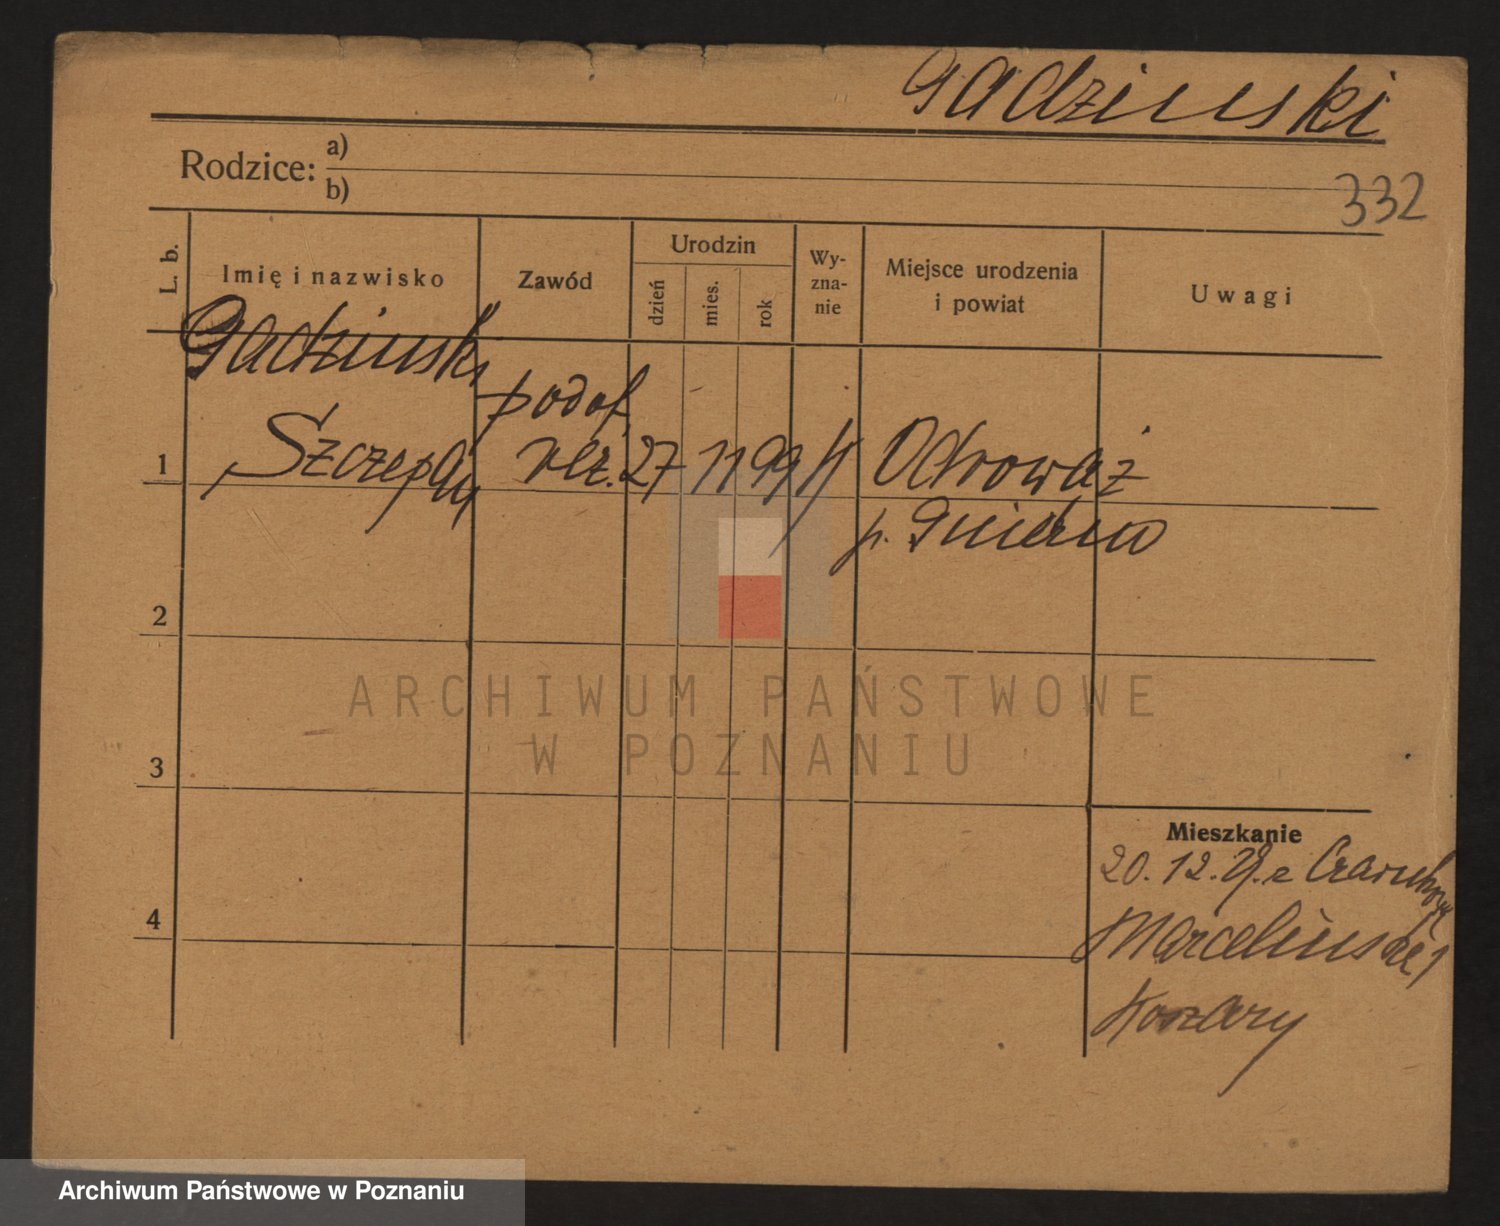 Gadziński
Rodzice: a)
b)
332
L. b.
Imię i nazwisko
Zawód
Urodzin
dzień
mies.
rok
Wy-
zna-
nie
Miejsce urodzenia
i powiat
Uwagi
Gadziński
podof.
1 Szczepan rez. 27 11 99 Odrowąż
p. Gniezno
2
3
4
Mieszkanie
20. 12. 29. z
Marcelińska
Koszary
ARCHIWUM PAŃSTWOWE
W POZNANIU
Archiwum Państwowe w Poznaniu